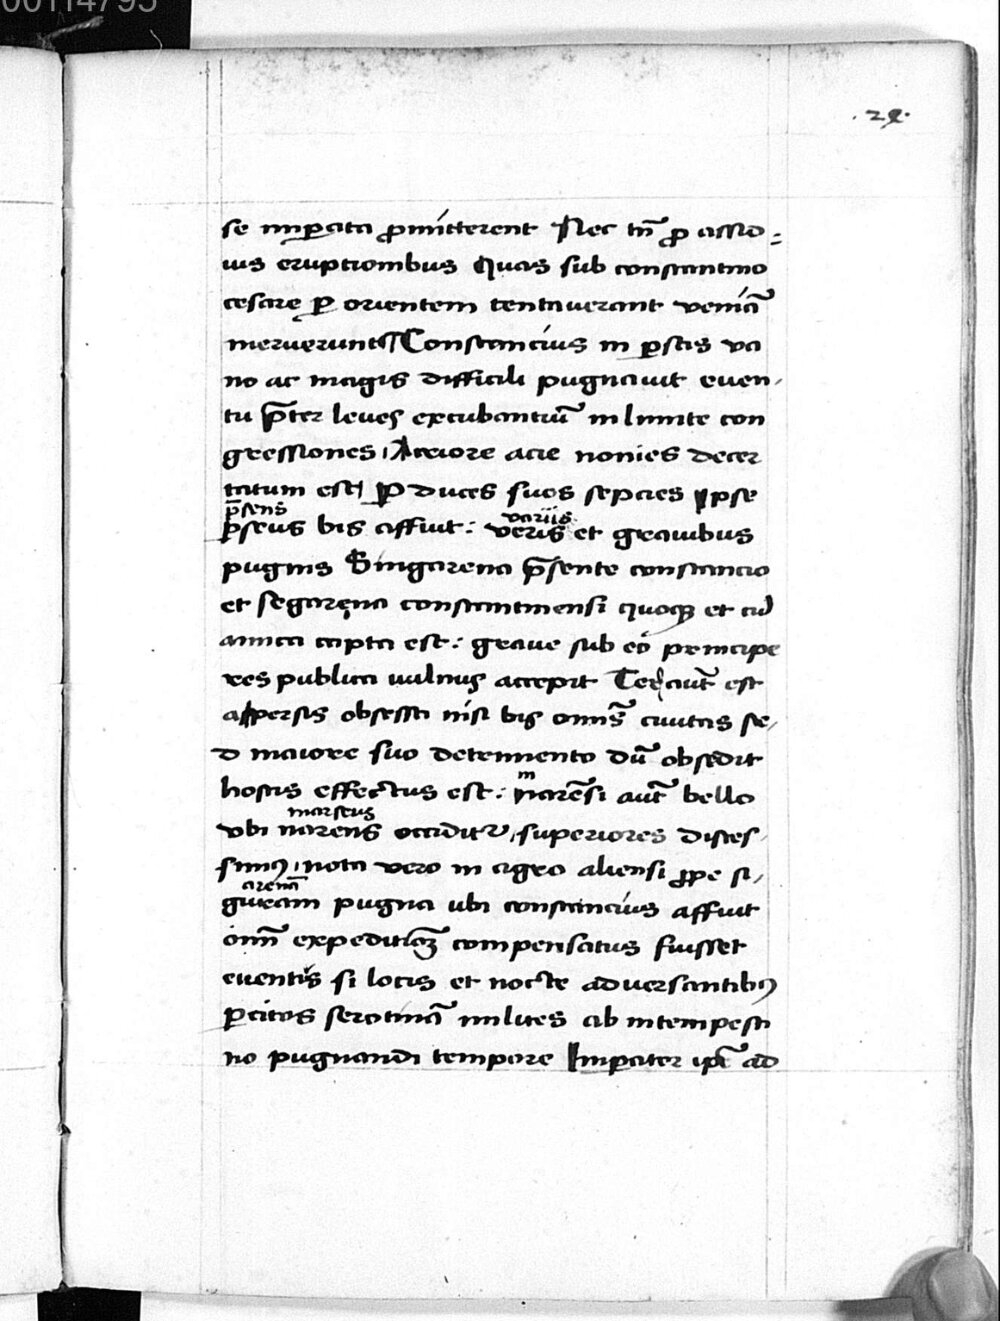 00114795
.29.
se imperata promitterent Nec tñ pro assid=
uis eruptionibus Quas sub constantino
cesare per orientem tentaverant veniã
meruerunt ¶ Constancius in persas va
no ac magis difficili pugnavit even,
tu preter leves excubantiũ in limite con
gressiones, Acriore acie nonies decer
tatum est, Per duces suos sepcies ipse
p̃sens
p̃seus bis affuit: veris et gravibus
variis
pugnis Singarena p̃sente constancio
et segarena constantinensi quoque et cũ
amica capta est: grave sub eo principe
res publica vulnus accepit Terciaũt est
a persis obsessa nisi bis omñs civitas se,
d maiore suo detrimento dũ obsedit
hostis effectus est: narẽsi aut bello
m
ubi narens occiditur, superiores disces,
marseus
simus, nota vero in agro aliensi prope si,
gweam pugna ubi constancius affuit
arenã
omñ expediticõ compensatus fuisset
eventus si locis et nocte adversantibus
percitos serotinã milites ab intempesti
no pugnandi tempore Imperater ip̃e ad